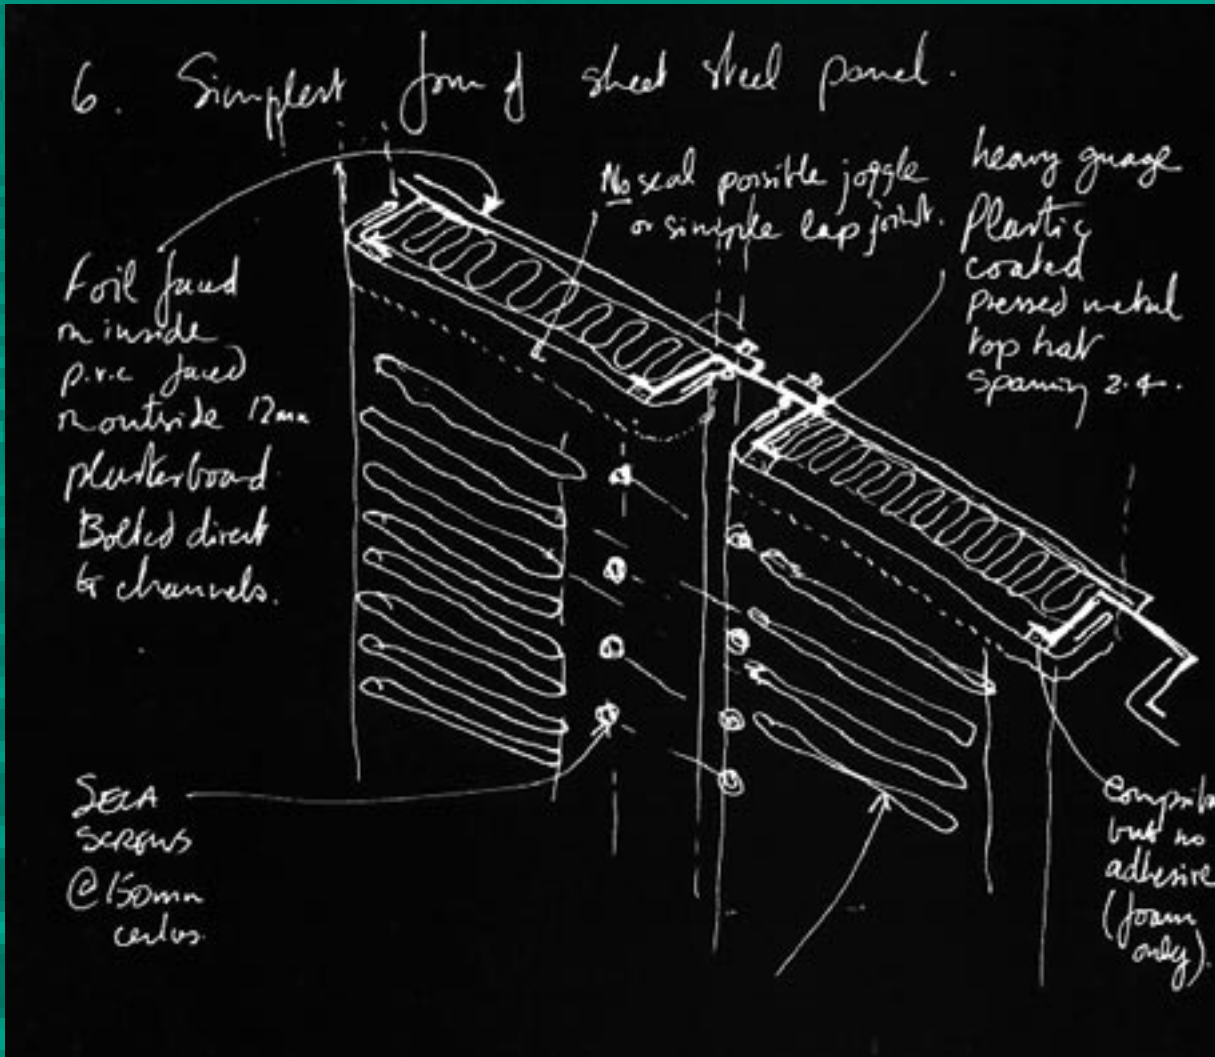 6. Simplest form of sheet steel panel.
No seal possible joggle
or simple lap joint.
heavy guage
Plastic
coated
pressed metal
top hat
spanning 2.4.
Foil faced
on inside
p.v.c faced
on outside 12mm
plasterboard
Bolted direct
to channels.
SELA
SCREWS
@ 150mm
centres.
but no
adhesive
(foam
only).